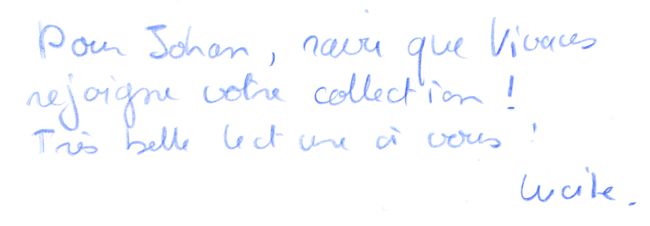 Pour Johan, ravie que Vivaces
rejoigne votre collection !
Très belle lecture à vous !
Lucile.